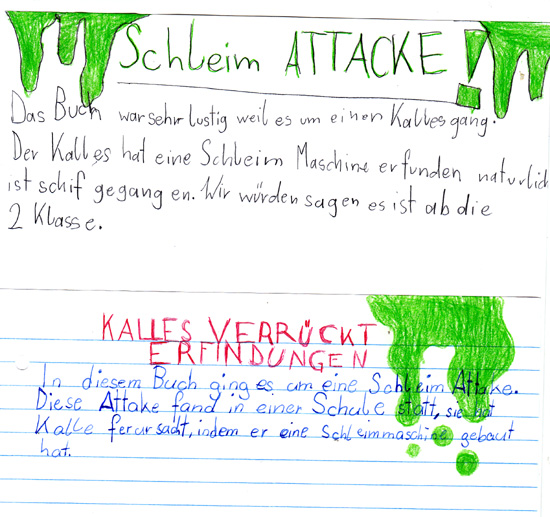 Schleim ATTACKE!
Das Buch war sehr lustig weil es um einen Kalles gang.
Der Kalles hat eine Schleim Maschine erfunden naturlich
ist schif gegangen. Wir würden sagen es ist ab die
2 Klasse.
KALLES VERRÜCKT
ERFINDUNGEN
In diesem Buch ging es um eine Schleim Attake.
Diese Attake fand in einer Schule statt, sie hat
Kalle ferursacht, indem er eine Schleimmaschine gebaut
hat.